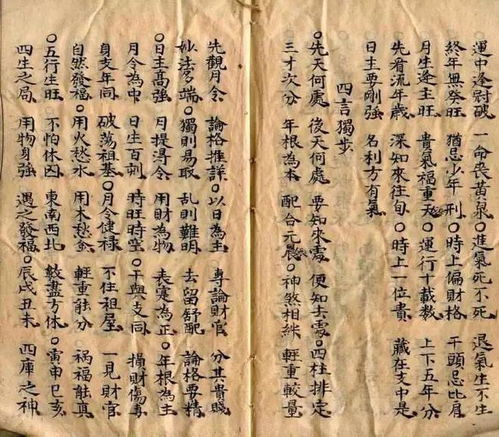 運中逢尉破 一命喪黃泉○進氣死不死 退氣生不生
終年無癸旺 猶忌少年刑○時上偏財格 干頭忌比肩
月生逢主旺 貴氣福重天○運行十載數 上下五年分
先看流年歲 深知來往旬○時上一位貴 藏在支中是
日主要剛強 名利方有氣
四言獨步
○先天何處 後天何處 要知來處 便知去處○四柱排定
三才次分 年根為本 配合元辰○神煞相絆 輕重較量
先觀月令 論格推詳○以日為主 專論財官 分其貴賤
妙法多端○獨則易取 亂則難明 去留舒配 論格要精
○日主高強 月提得令 用財為物 表實為正○年根為主
月令為中 日生百刻 時旺時空○干與支同 損財傷妻
身支年同 破蕩祖基○月令健祿 不住祖屋 一見財官
自然發福○用火愁水 用木愁金 輕重能分 禍福能真
○五行生旺 不怕休囚 東南西北 數盡方休○寅申巳亥
四生之局 用物身強 遇之發福○辰戌丑未 四庫之神